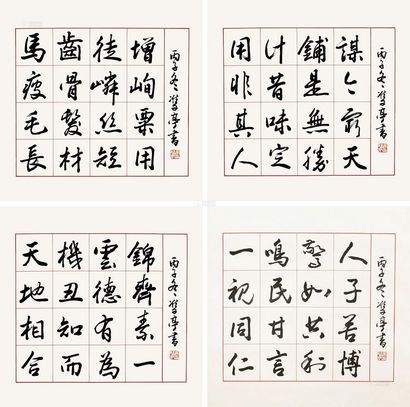 增峋粟用
徒嶙絲短
齒骨鬢材
馬瘦毛長
丙子冬 亭書
謀今窮天
鋪是無勝
計昔味定
用非其人
丙子冬 亭書
錦齊素一
雲德有為
機丑知而
天地相合
丙子冬 亭書
人子苦博
驚如共利
鳴民甘言
一視同仁
丙子冬 亭書